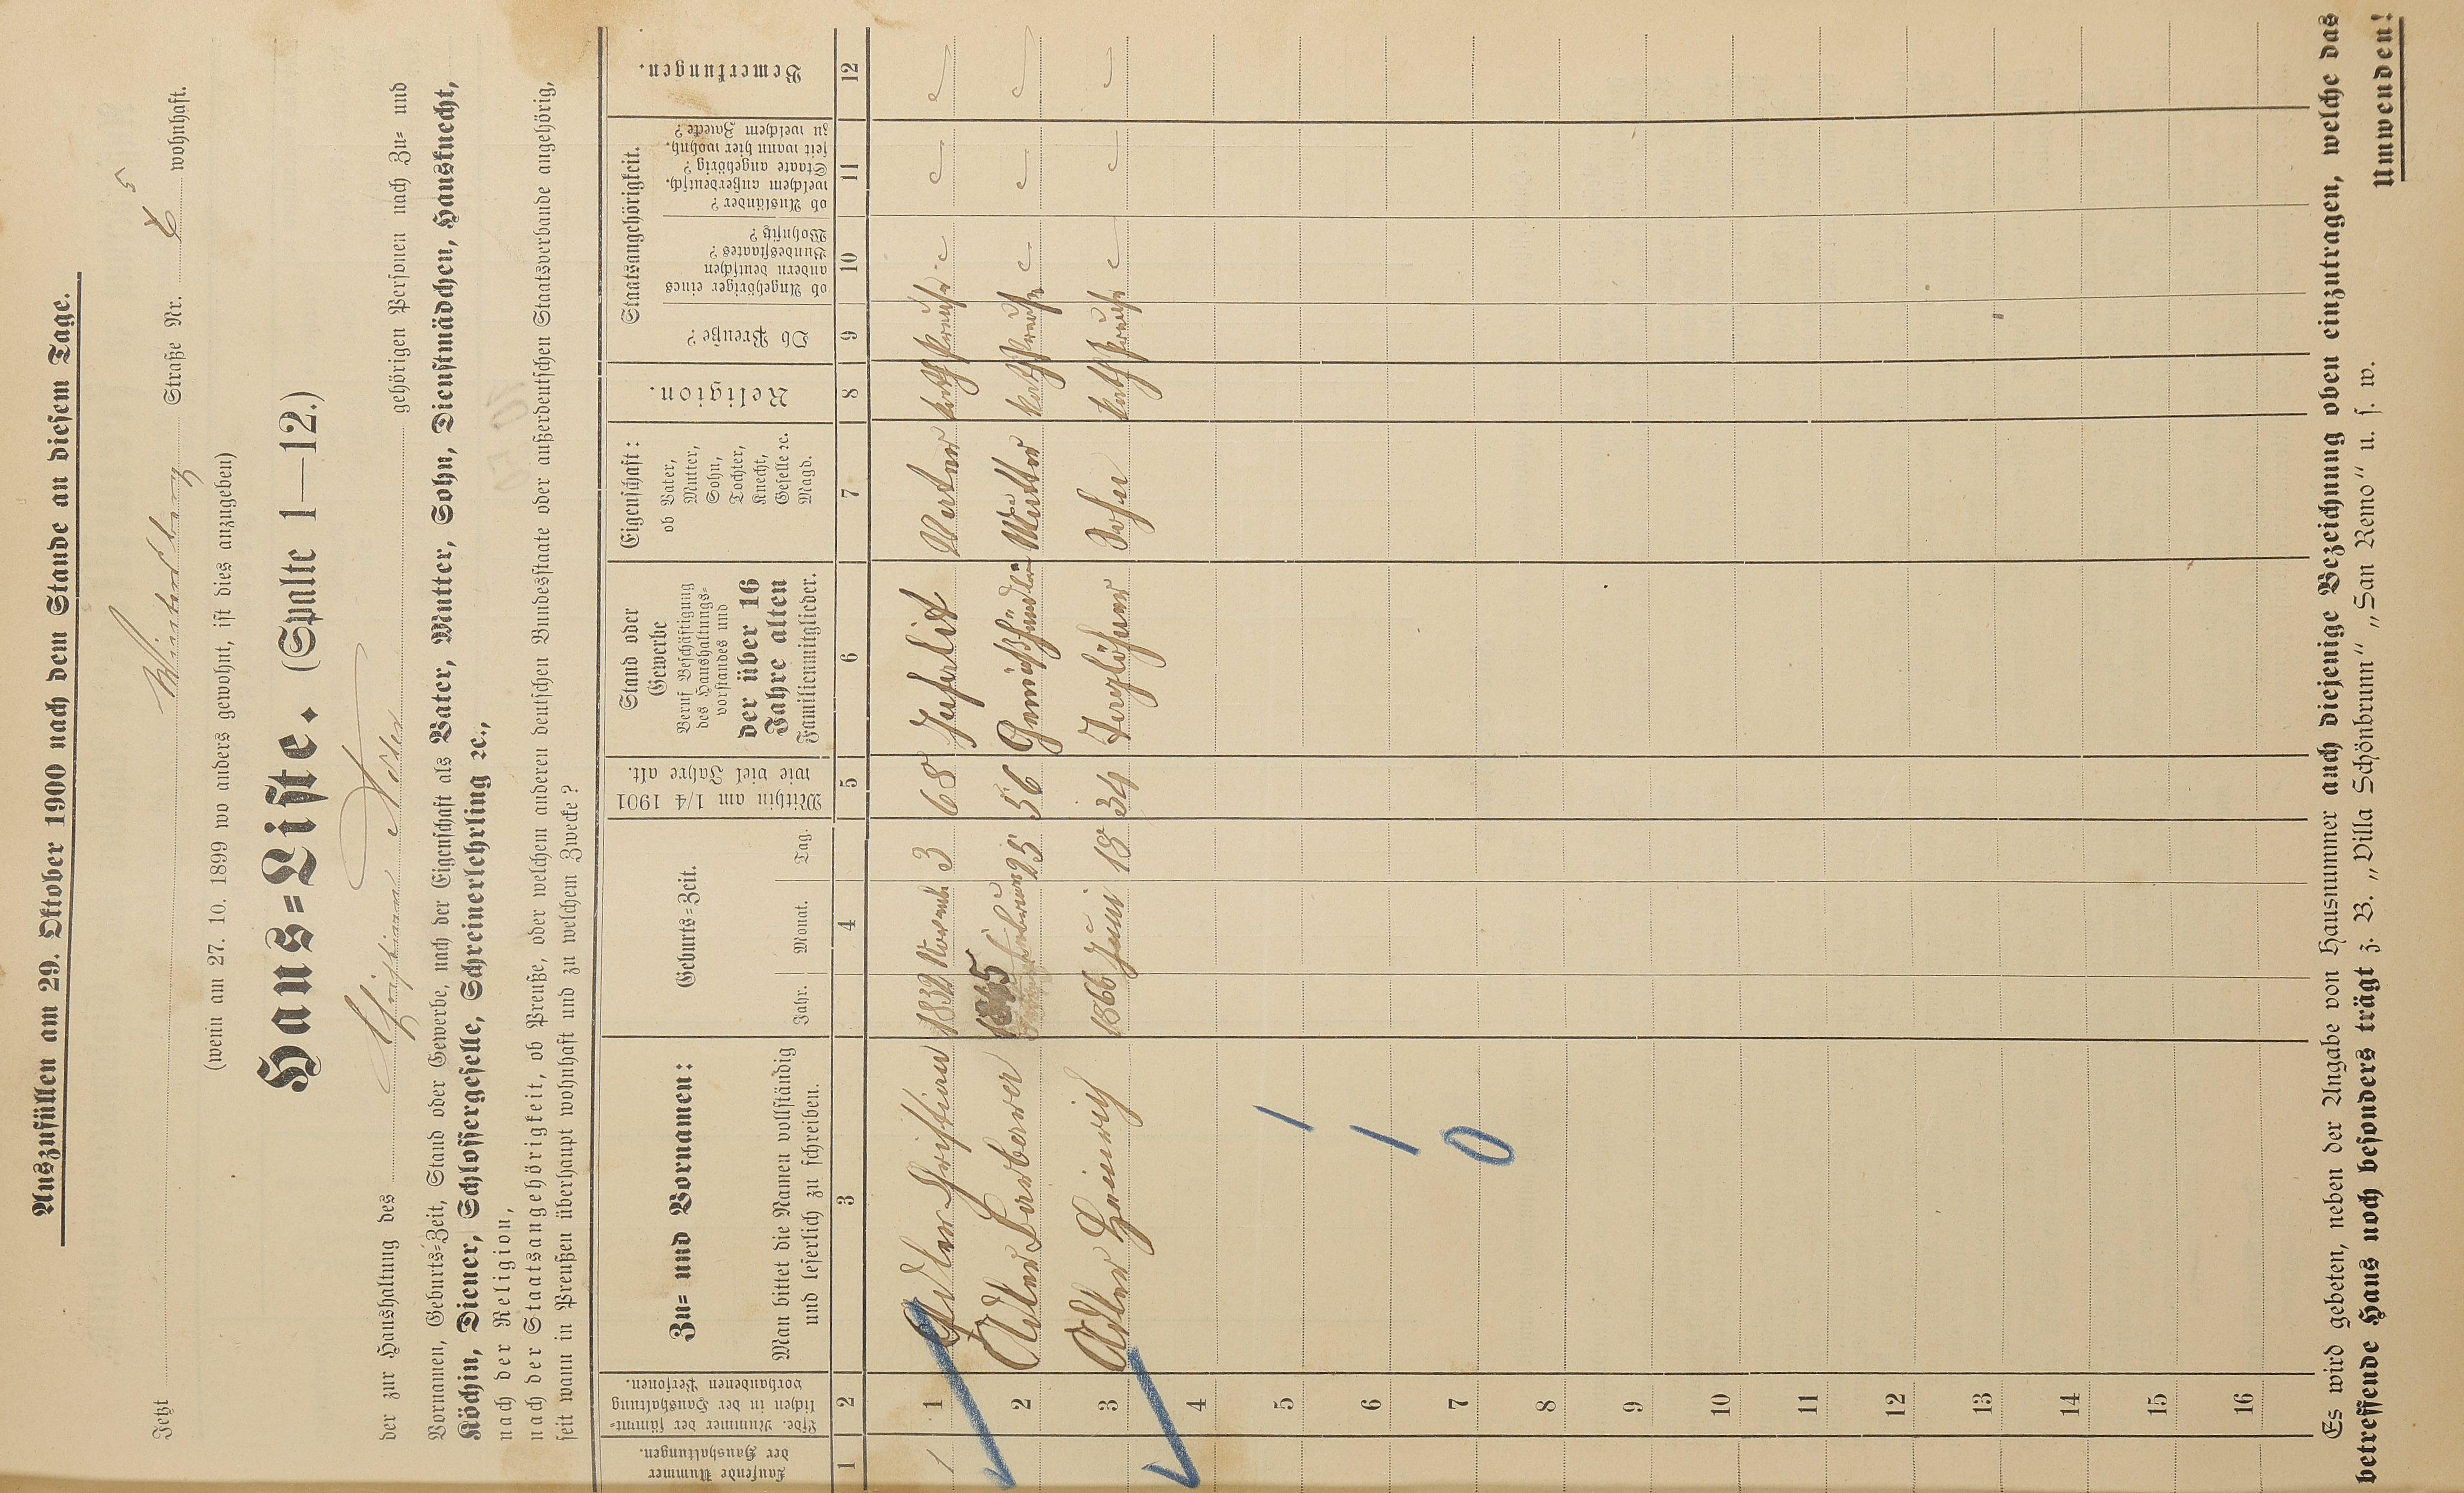 Auszufüllen am 29. Oktober 1900 nach dem Stande an diesem Tage.
Jetzt Winterberg Straße Nr. 5 wohnhaft.
(wenn am 27. 10. 1899 wo anders gewohnt, ist dies anzugeben)
Haus=Liste. (Spalte 1—12.)
der zur Haushaltung des Christian Adler gehörigen Personen nach Zu= und
Vornamen, Geburts=Zeit, Stand oder Gewerbe, nach der Eigenschaft als Vater, Mutter, Sohn, Dienstmädchen, Hausknecht,
Köchin, Diener, Schlossergeselle, Schreinerlehrling ꝛc.,
nach der Religion,
nach der Staatsangehörigkeit, ob Preuße, oder welchem anderen deutschen Bundesstaate oder außerdeutschen Staatsverbande angehörig,
seit wann in Preußen überhaupt wohnhaft und zu welchem Zwecke?
Laufende Nummer der Haushaltungen.
Lfde. Nummer der sämmt=lichen in der Haushaltung vorhandenen Personen.
Zu= und Vornamen:
Man bittet die Namen vollständig
und leserlich zu schreiben.
Geburts=Zeit.
Jahr. Monat. Tag.
Mithin am 1/4 1901 wie viel Jahre alt.
Stand oder
Gewerbe
Beruf Beschäftigung
des Haushaltungs=
vorstandes und
der über 16
Jahre alten
Familienmitglieder.
Eigenschaft:
ob Vater,
Mutter,
Sohn,
Tochter,
Knecht,
Geselle ꝛc.
Magd.
Religion.
Staatsangehörigkeit.
Ob Preuße?
ob Angehöriger eines
andern deutschen
Bundesstaates?
Wohnsitz?
ob Ausländer?
welchem außerdeutsch.
Staate angehörig?
seit wann hier wohnh.
zu welchem Zwecke?
Bemerkungen.
1 2 3 4 5 6 7 8 9 10 11 12
1 1 Adler Christian 1832 November 3 68 Invalid Vater kath Preuße
2 Adler Barbara 1845 Februar 25 56 Gemüßhändler Mutter kath Preuße
3 Adler Heinrich 1866 Juni 18 34 Taglöhner Sohn kath Preuße
4
5 1
6 1
7 0
8
9
10
11
12
13
14
15
16
Es wird gebeten, neben der Angabe von Hausnummer auch diejenige Bezeichnung oben einzutragen, welche das
betreffende Haus noch besonders trägt z. B. „Villa Schönbrunn“ „San Remo“ u. s. w.
Umwenden!